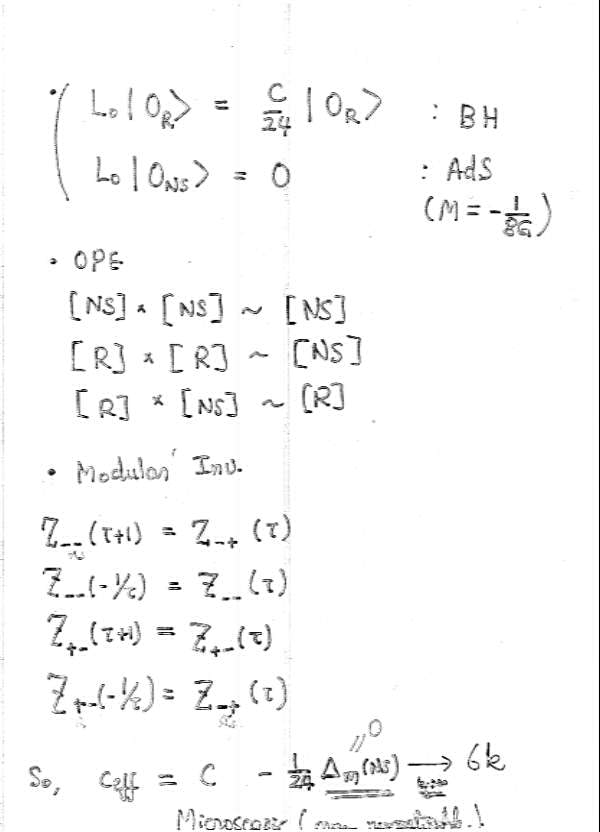 • ( L₀|O_R> = C/24 |O_R> : BH
L₀|O_NS> = 0 : AdS
(M = -1/8G)
• OPE
[NS] × [NS] ~ [NS]
[R] × [R] ~ [NS]
[R] × [NS] ~ [R]
• Modular Inv.
Z_--(τ+1) = Z_-+(τ)
Z_--(-1/τ) = Z_--(τ)
Z_+-(τ+1) = Z_+-(τ)
Z_+-(-1/τ) = Z_-+(τ)
So, C_eff = C - 1/24 Δ_m(NS) → 6k
= 0